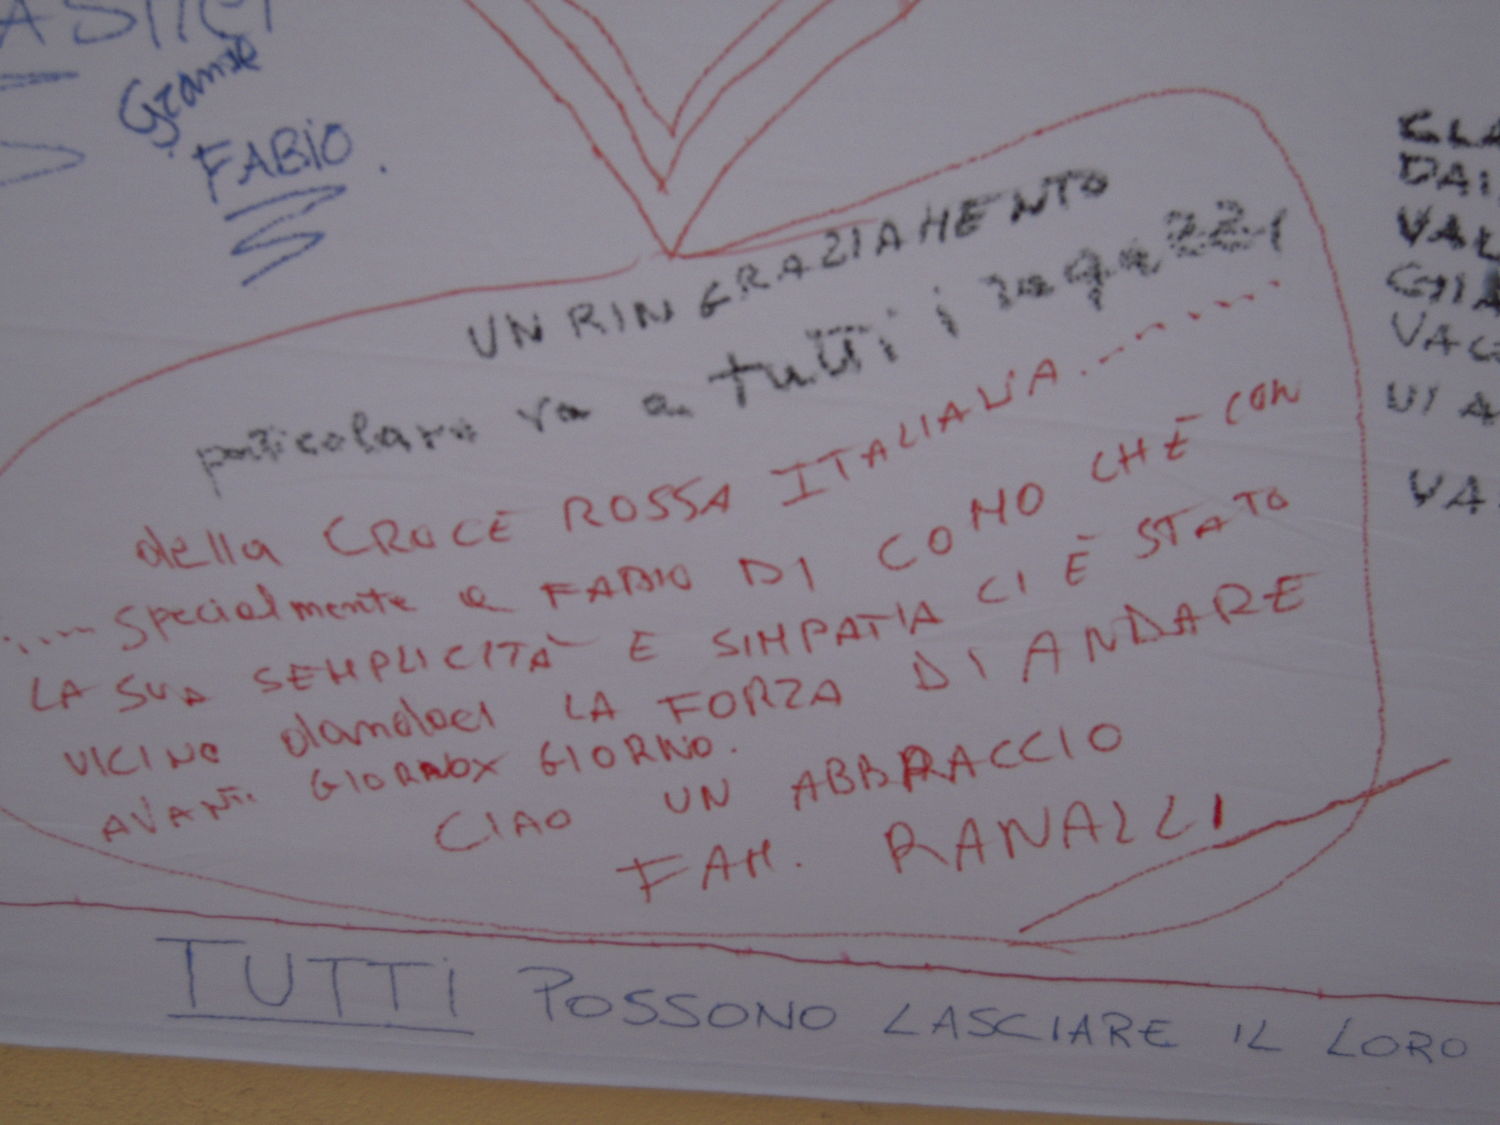 Grande
FABIO.
UN RINGRAZIAMENTO
particolare va a tutti i ragazzi
della CROCE ROSSA ITALIANA.......
..... specialmente a FABIO DI COMO CHE CON
LA SUA SEMPLICITÀ E SIMPATIA CI È STATO
VICINO dandoci LA FORZA DI ANDARE
AVANTI GIORNO X GIORNO.
CIAO UN ABBRACCIO
FAM. RANALLI
TUTTI POSSONO LASCIARE IL LORO